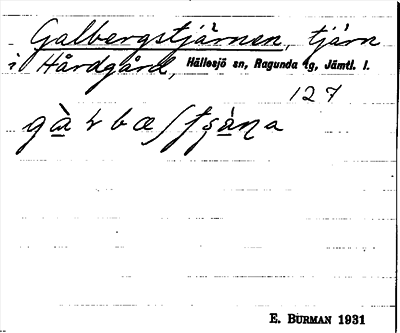 Galbergstjärnen, tjärn
i Hårdgård, Hällesjö sn, Ragunda tg, Jämtl. l.
127
E. BURMAN 1931